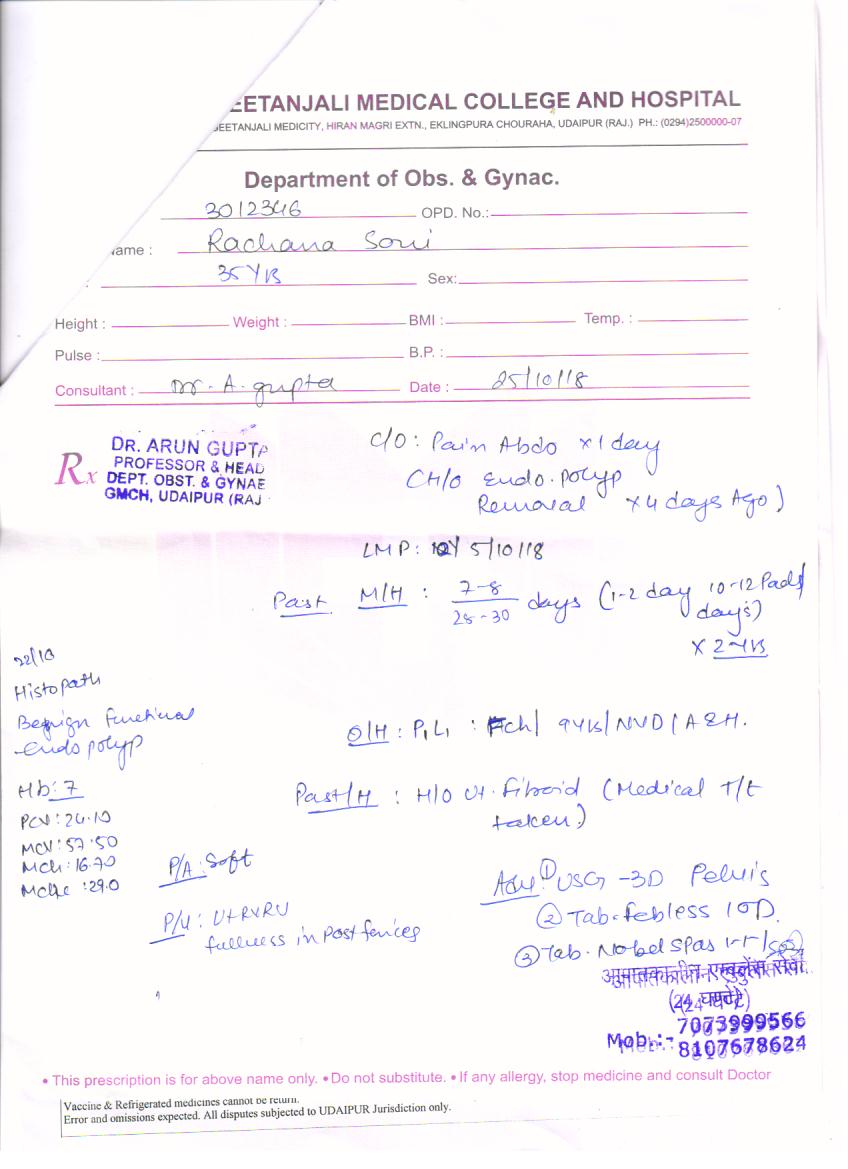 EETANJALI MEDICAL COLLEGE AND HOSPITAL
GEETANJALI MEDICITY, HIRAN MAGRI EXTN., EKLINGPURA CHOURAHA, UDAIPUR (RAJ.) PH.: (0294)2500000-07
Department of Obs. & Gynac.
3012346 OPD. No.:
ame : Rachana Soni
35 Yrs Sex:
Height : Weight : BMI : Temp. :
Pulse : B.P. :
Consultant : Dr. A. gupta Date : 25/10/18
Rx
DR. ARUN GUPTA
PROFESSOR & HEAD
DEPT. OBST. & GYNAE
GMCH, UDAIPUR (RAJ
C/O : Pain Abdo x 1 day
(H/O Endo. polyp
Removal x 4 days Ago)
LMP : 5/10/18
Past M/H : 7-8 / 28-30 days (1-2 day 10-12 Pads/
days)
x 2 Yrs
22/10
Histopath
Benign functional
endo polyp
Hb : 7
PCV : 24.10
MCV : 57.50
MCH : 16.70
MCHC : 29.0
O/H : P1L1 : Fch/ 9 Yrs / NVD / A&H.
Past/H : H/O Ut. Fibroid (Medical T/t
taken)
P/A : Soft
P/V : Ut RVRV
fullness in Post fences
Adv. ① USG - 3D Pelvis
② Tab. febless 1 OD.
③ Tab. Nobel spas 1-1-1 / SOS
आपातकालीन एम्बुलेंस सेवा
(24 घण्टे)
Mob.:- 7073999566
8107678624
• This prescription is for above name only. • Do not substitute. • If any allergy, stop medicine and consult Doctor
Vaccine & Refrigerated medicines cannot be return.
Error and omissions expected. All disputes subjected to UDAIPUR Jurisdiction only.